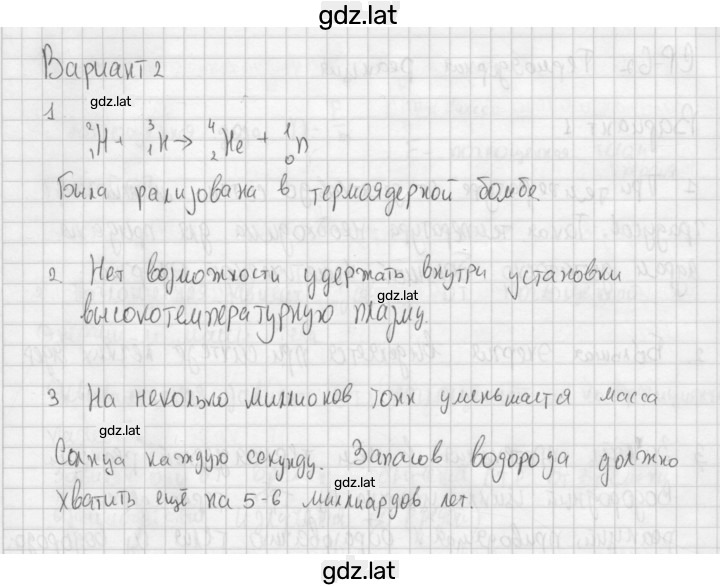 gdz.lat
Вариант 2
gdz.lat
1
²₁H + ³₁H → ⁴₂He + ¹₀n
Была рализована в термоядерной бомбе.
2. Нет возможности удержать внутри установки
gdz.lat
высокотемпературную плазму.
3 На неколько миллионов тонн уменьшается масса
gdz.lat
Солнца каждую секунду. Запасов водорода должно
gdz.lat
хватить ещё на 5-6 миллиардов лет.
gdz.lat